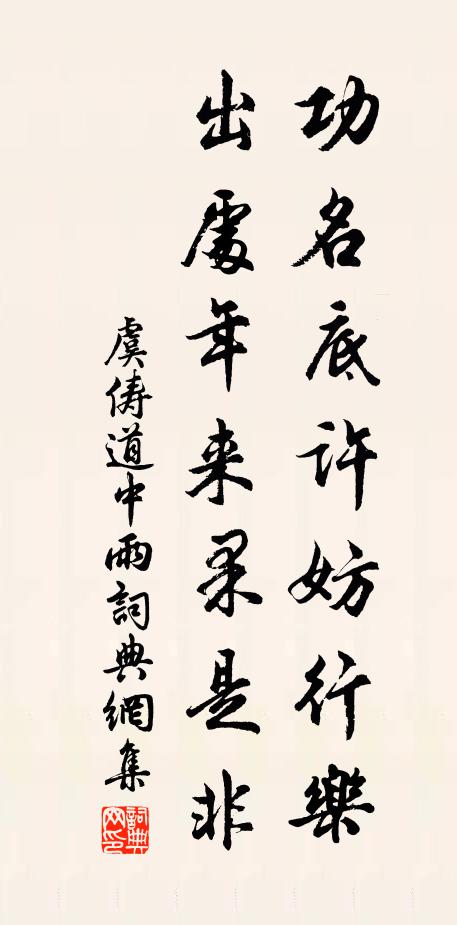 功名底許妨行樂
出處年來果是非
虞儔道中雨詞典網集
詞典網印